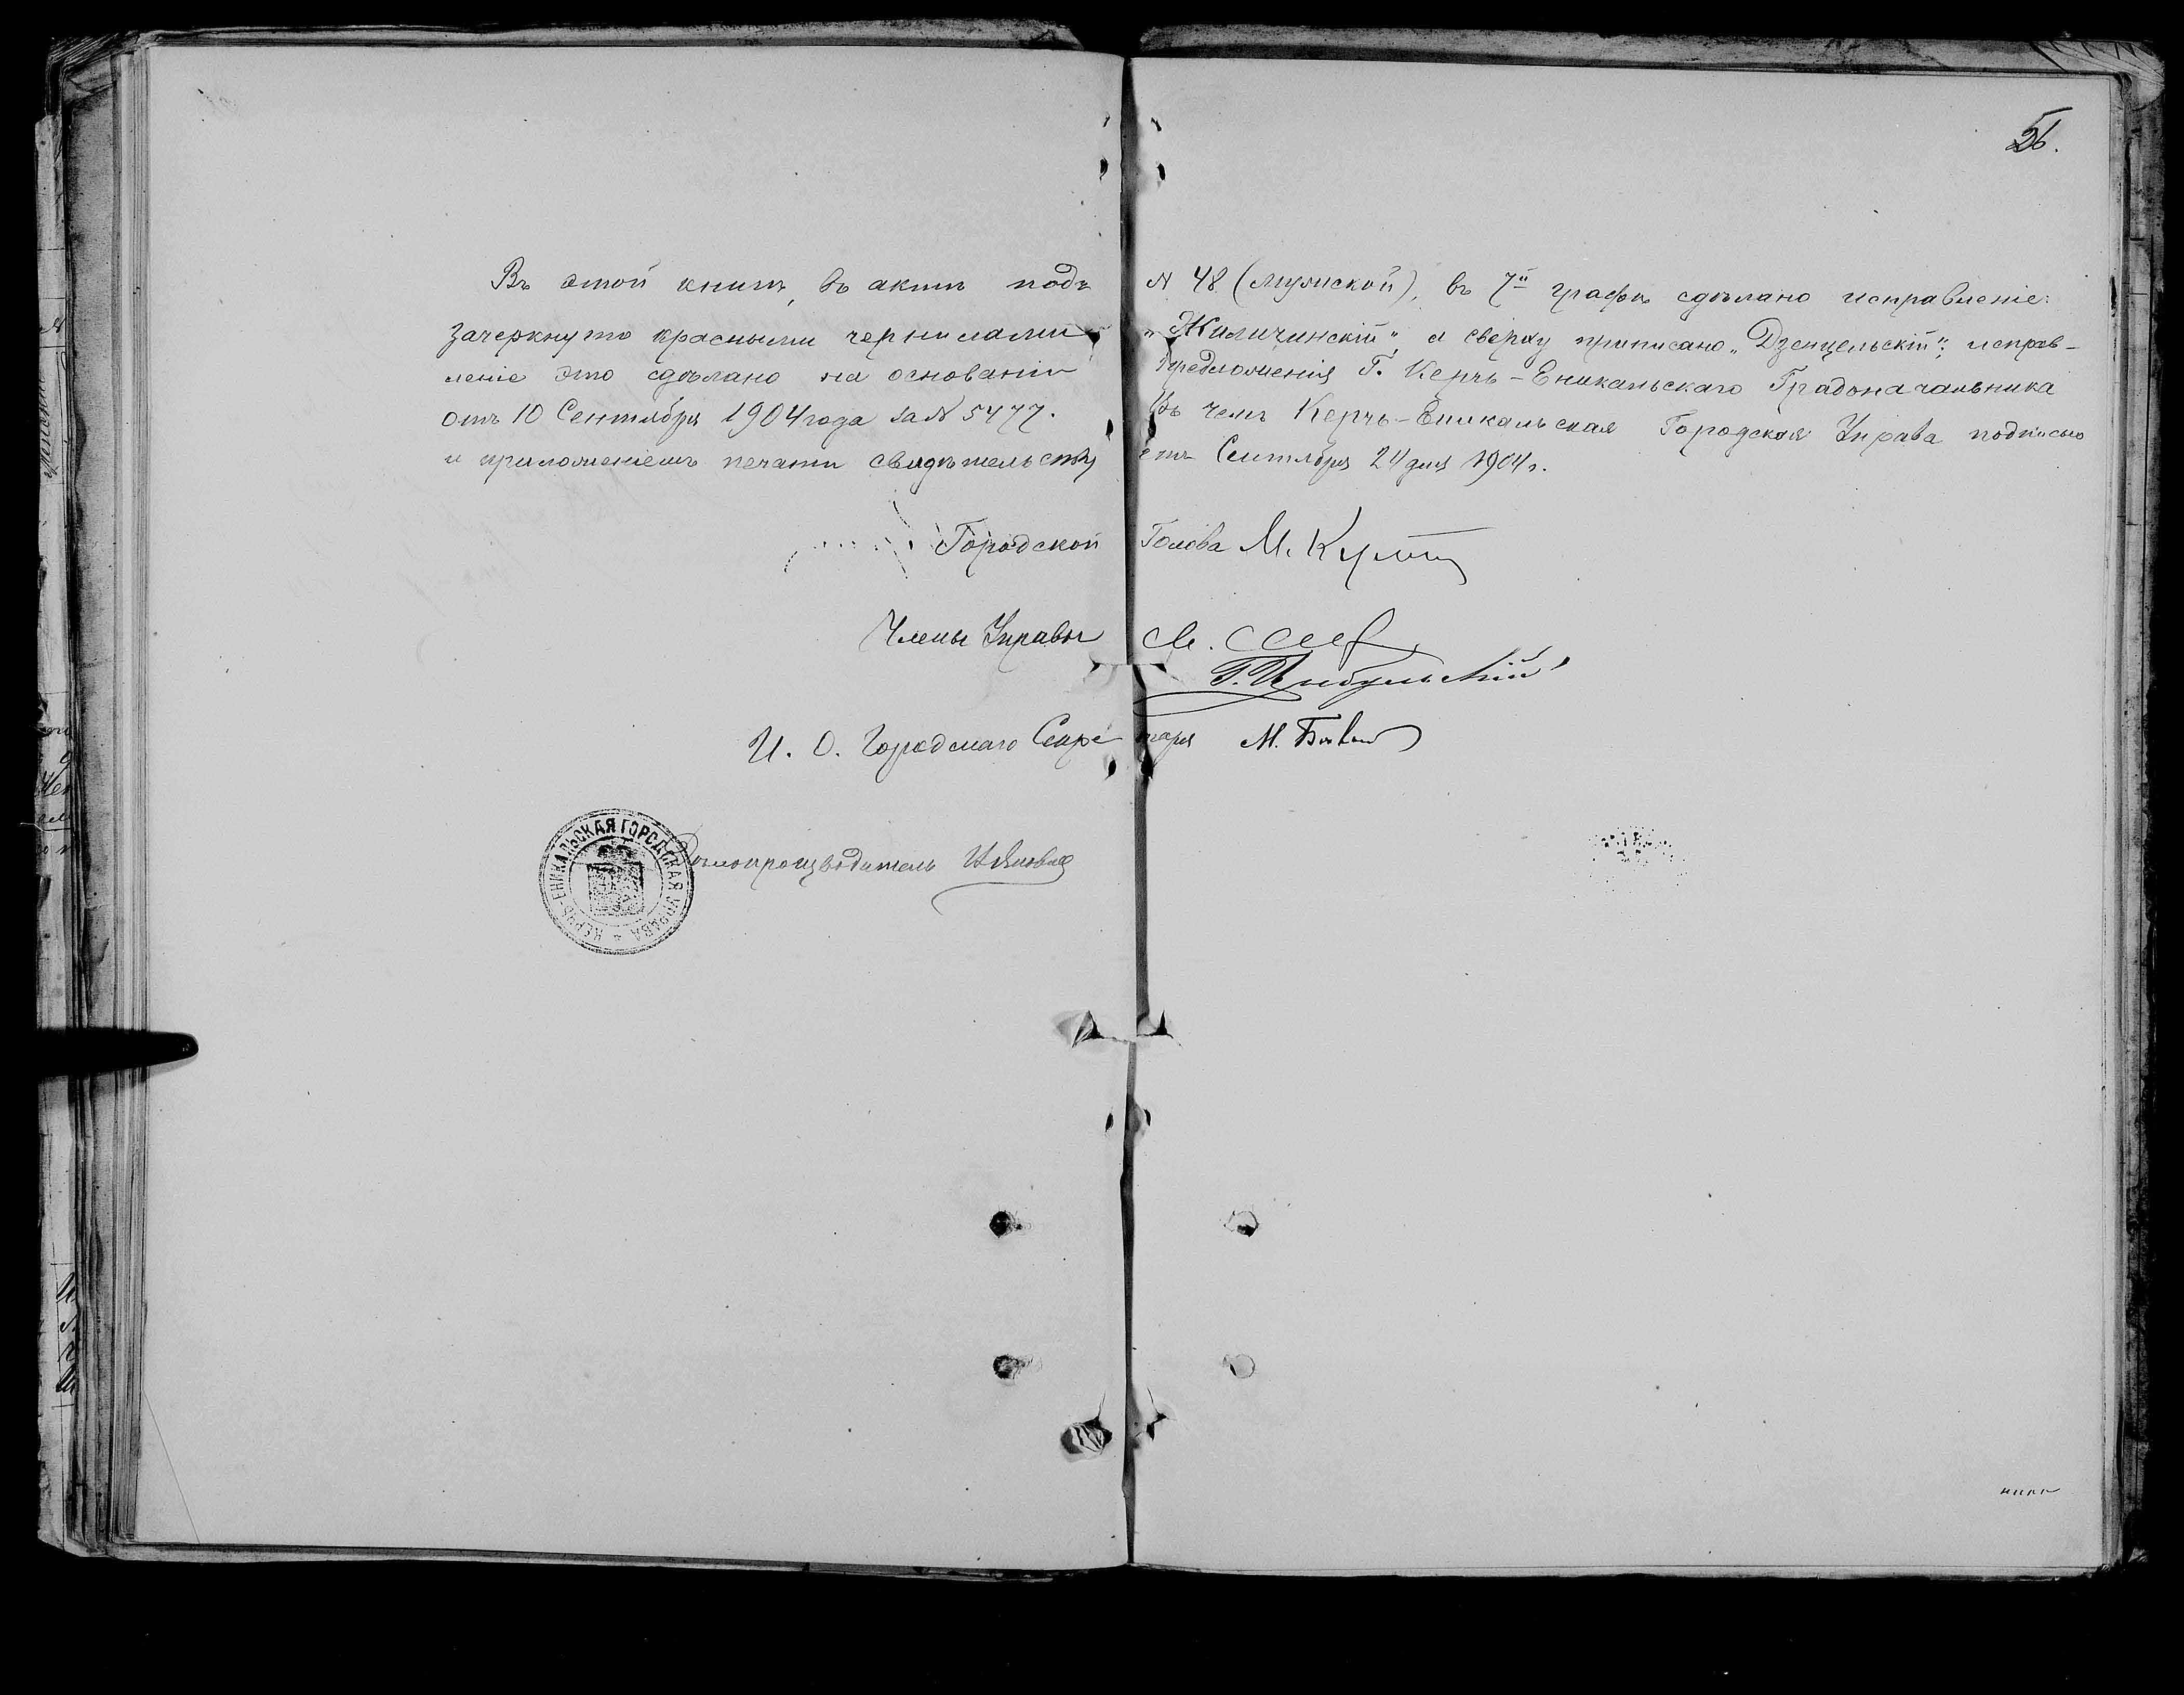 56.
Въ этой книгѣ, въ актѣ подъ № 48 (мужской), въ 7й графѣ сдѣлано исправленіе:
зачеркнуто красными чернилами „Жиличинскій" а сверху приписано „Дзенцельскій"; исправ-
леніе это сдѣлано на основаніи предложенія Г. Керчь-Еникальскаго Градоначальника
отъ 10 Сентября 1904 года за № 5477. Въ чемъ Керчь-Еникальская Городская Управа подписью
и приложеніемъ печати свидѣтельствуетъ Сентября 24 дня 1904 г.
Городской Голова М. Кулі
Члены Управы
Г. Цыбульскій
И. О. Городскаго Секретаря М.
Дѣлопроизводитель
КЕРЧЬ-ЕНИКАЛЬСКАЯ ГОРОДСКАЯ УПРАВА